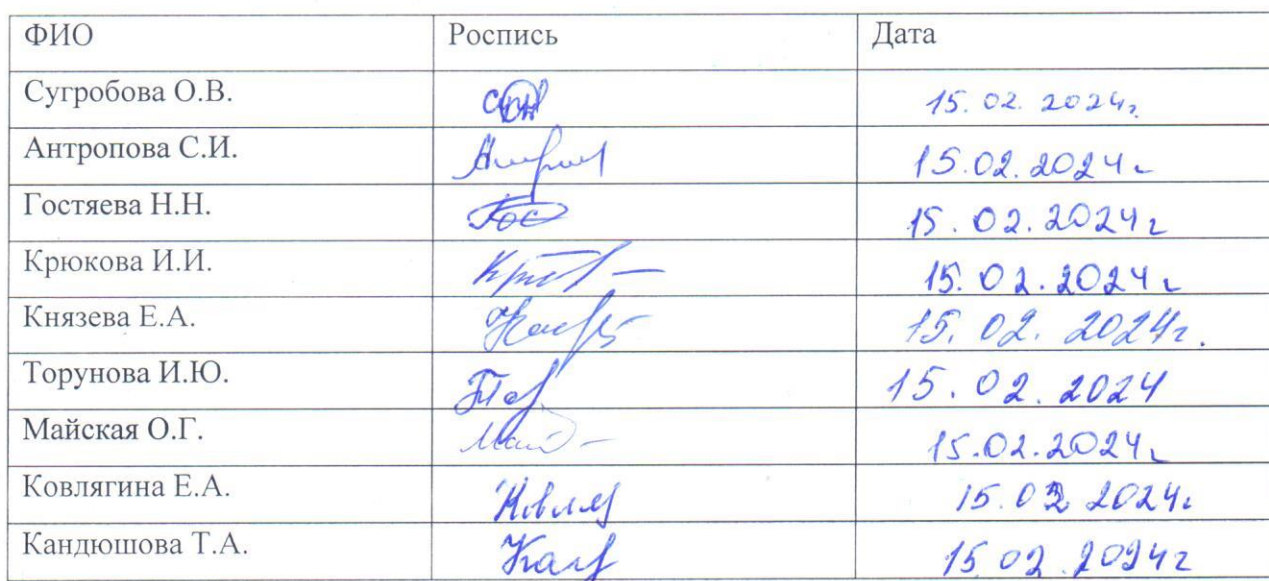 ФИО Роспись Дата
Сугробова О.В. 15.02.2024г.
Антропова С.И. 15.02.2024г
Гостяева Н.Н. 15.02.2024г
Крюкова И.И. 15.02.2024г
Князева Е.А. 15.02.2024г.
Торунова И.Ю. 15.02.2024
Майская О.Г. 15.02.2024г
Ковлягина Е.А. 15.02 2024г
Кандюшова Т.А. 15 02.2024г